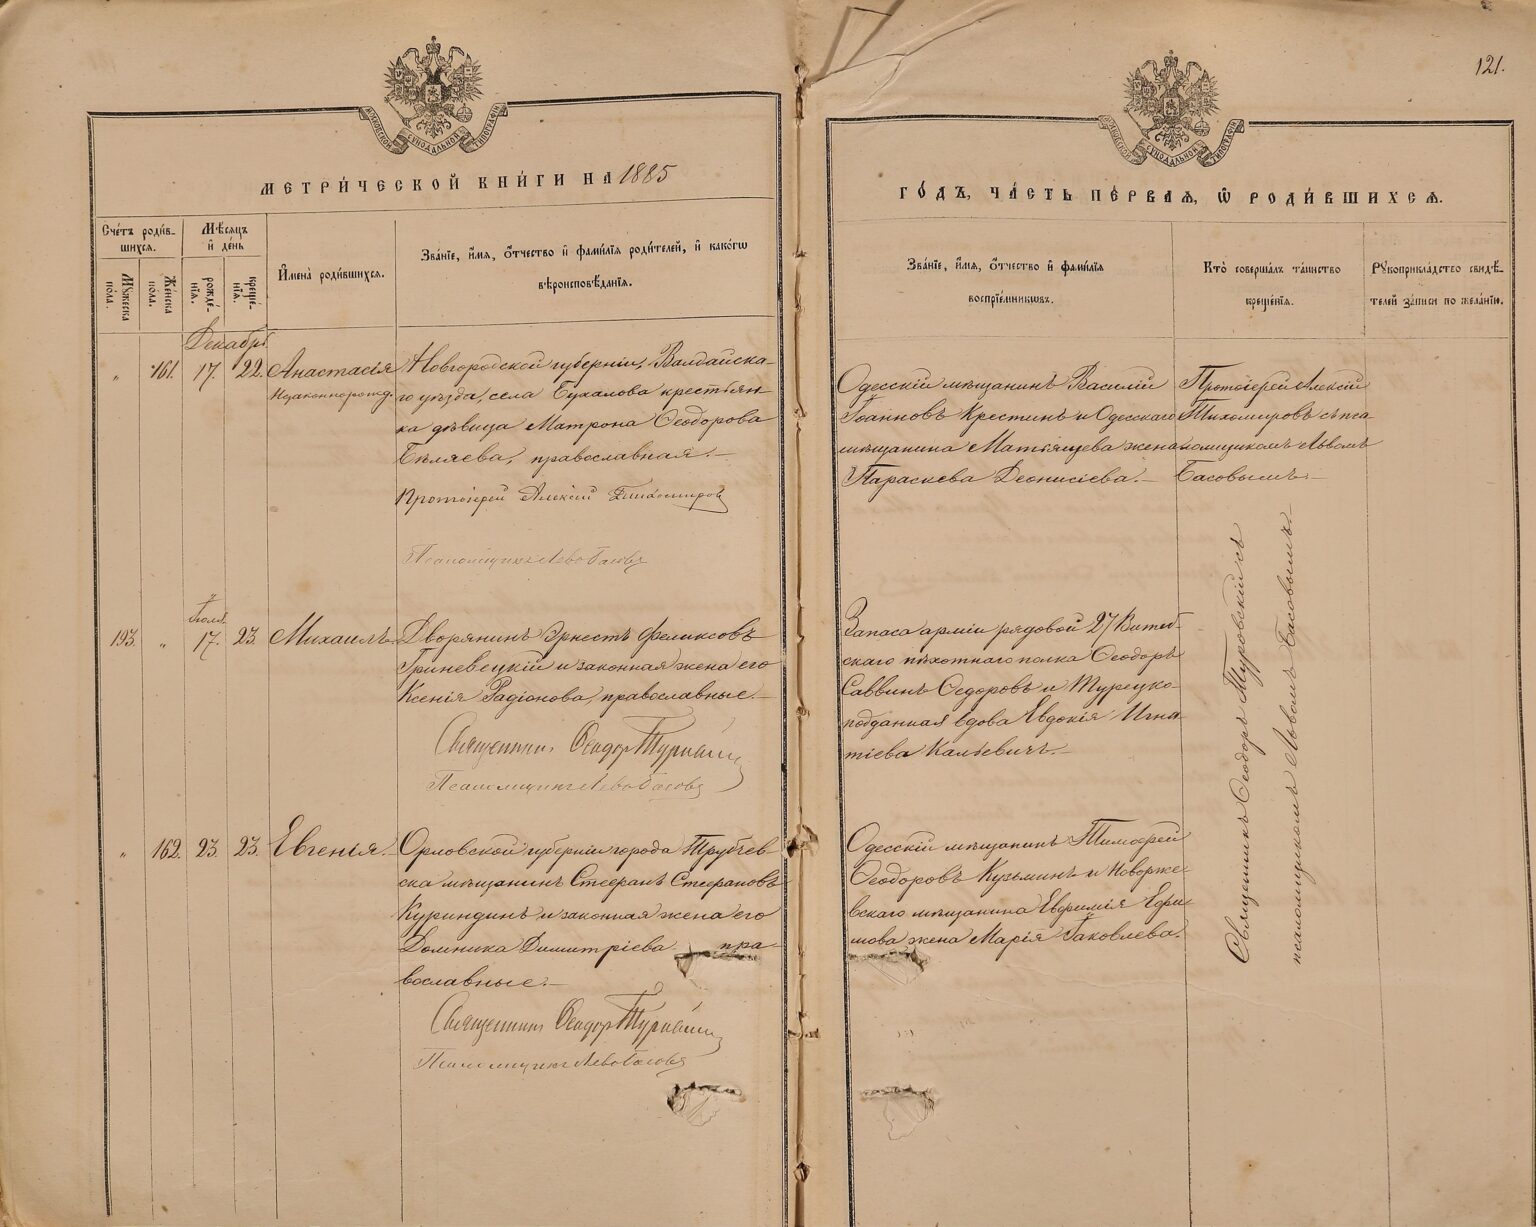 121.
МОСКОВСКОЙ СѴНОДАЛЬНОЙ ТИПОГРАФІИ
МОСКОВСКОЙ СѴНОДАЛЬНОЙ ТИПОГРАФІИ
МЕТРИ́ЧЕСКОЙ КНИ́ГИ НА 1885
ГО́ДЪ, ЧА́СТЬ ПЕ́РВАѦ, Ѡ҆ РОДИ́ВШИХСѦ.
Сче́тъ роди́в-
шихсѧ.
Мꙋжеска пола.
Же́нска пола.
Мѣ́сѧцъ
и҆ де́нь
рожде́-
нїѧ.
креще́-
нїѧ.
И҆мена̀ роди́вшихсѧ.
Зва́нїе, и҆́мѧ, ѻ҆́тчество и҆ фами́лїѧ роди́телей, и҆ како́гѡ
вѣроисповѣ́данїѧ.
Зва́нїе, и҆́мѧ, ѻ҆́тчество и҆ фами́лїѧ
воспрїе́мникѡвъ.
Кто̀ соверша́лъ та́инство
креще́нїѧ.
Рꙋкоприкла́дство свидѣ́-
телей за́писи по жела́нїю.
Декабрь
„ 161. 17. 22. Анастасія
Незаконнорожд.
Новгородской губерніи, Валдайска-
го уѣзда, села Бухалова крестьян-
ка дѣвица Матрона Ѳеодорова
Бѣляева, православная.—
Протоіерей Алексій Тихомировъ
Псаломщикъ Левъ Басовъ
Одесскій мѣщанинъ Василій
Іоанновъ Крестинъ и Одесскаго
мѣщанина Матвіящева жена
Параскева Деонисіева.—
Протоіерей Алексій
Тихомировъ съ пса-
ломщикомъ Львомъ
Басовымъ.—
Іюля
193. „ 17. 23. Михаилъ.
Дворянинъ Эрнестъ Феликсовъ
Гриневецкій и законная жена его
Ксенія Радіонова, православные.—
Священникъ Ѳеодоръ Туровскій
Псаломщикъ Левъ Басовъ
Запаса арміи рядовой 27 Витеб-
скаго пѣхотнаго полка Ѳеодоръ
Саввинъ Ѳедоровъ и Турецко-
подданная вдова Евдокія Игна-
тіева Кальевичъ.—
Священникъ Ѳеодоръ Туровскій съ
псаломщикомъ Львомъ Басовымъ.—
„ 162. 23. 23. Евгенія.
Орловской губерніи города Трубчев-
ска мѣщанинъ Стефанъ Стефановъ
Куриндинъ и законная жена его
Домника Димитріева пра-
вославные.—
Священникъ Ѳеодоръ Туровскій
Псаломщикъ Левъ Басовъ
Одесскій мѣщанинъ Тимофей
Ѳеодоровъ Кузьминъ и Новорже-
вскаго мѣщанина Евфимія Ефи-
мова жена Марія Іаковлева.